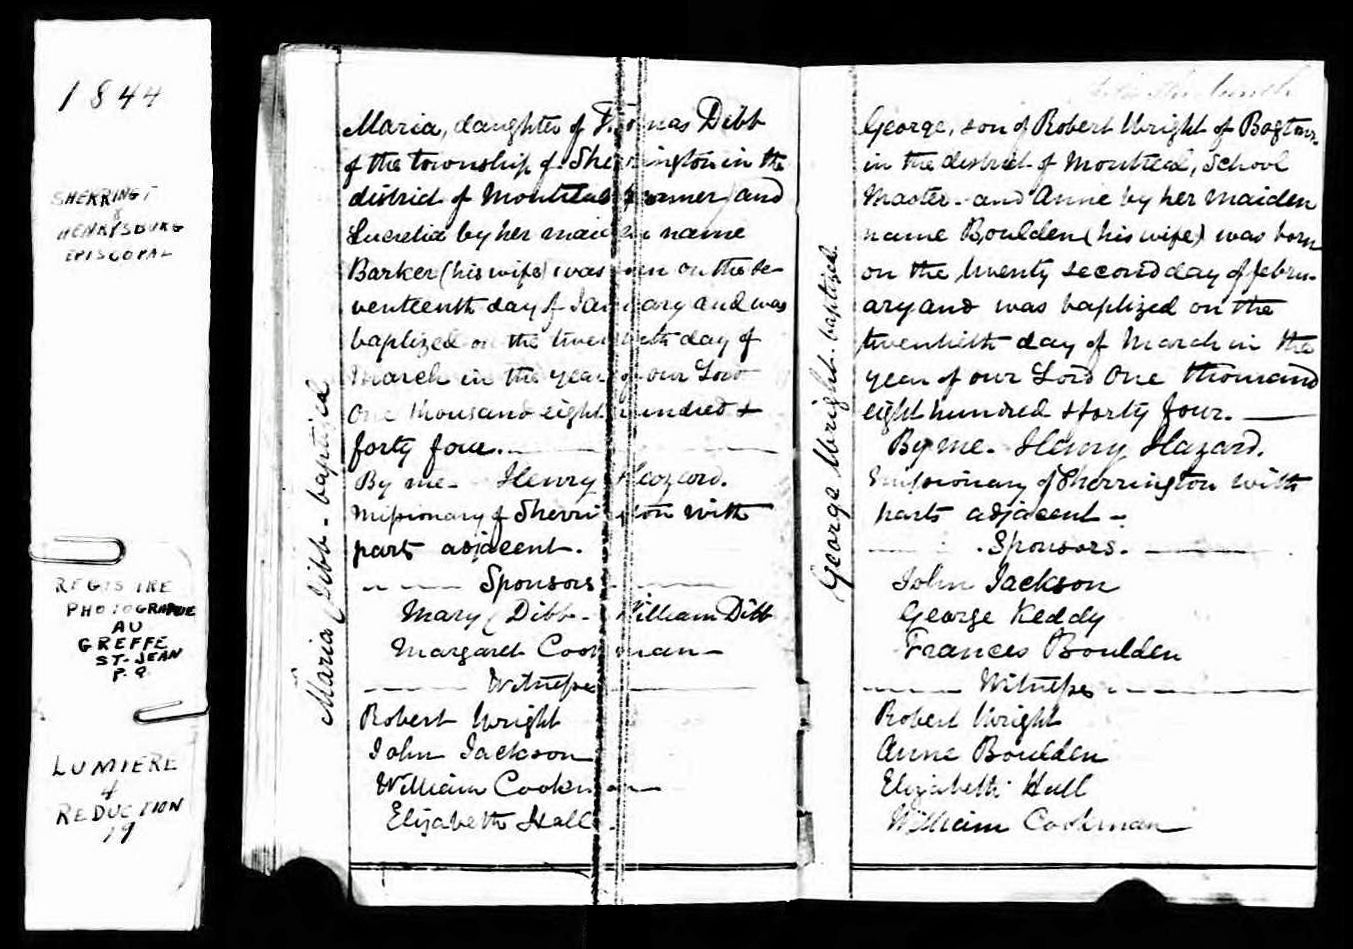 1844
SHERRINGT
&
HENRYSBURG
EPISCOPAL
REGISTRE
PHOTOGRAPHIE
AU
GREFFE
ST-JEAN
P.Q.
LUMIERE
4
REDUCTION
19
Maria Dibb - baptized
Maria, daughter of Thomas Dibb
of the township of Sherrington in the
district of Montreal (farmer) and
Lucretia by her maiden name
Barker (his wife) was born on the se-
venteenth day of January and was
baptized on the twentieth day of
March in the year of our Lord
One thousand eight hundred &
forty four.
By me - Henry Hazard.
Missionary of Sherrington with
parts adjacent.
Sponsors
Mary Dibb - William Dibb
Margaret Cookman
Witnesses
Robert Wright
John Jackson
William Cookman
Elizabeth Hall
George Wright - baptized
George, son of Robert Wright of
in the district of Montreal, School
Master - and Anne by her maiden
name Boulden (his wife) was born
on the twenty second day of Febru-
ary and was baptized on the
twentieth day of March in the
year of our Lord One thousand
eight hundred & forty four.
By me - Henry Hazard.
Missionary of Sherrington with
parts adjacent -
Sponsors.
John Jackson
George Keddy
Frances Boulden
Witnesses
Robert Wright
Anne Boulden
Elizabeth Hall
William Cookman